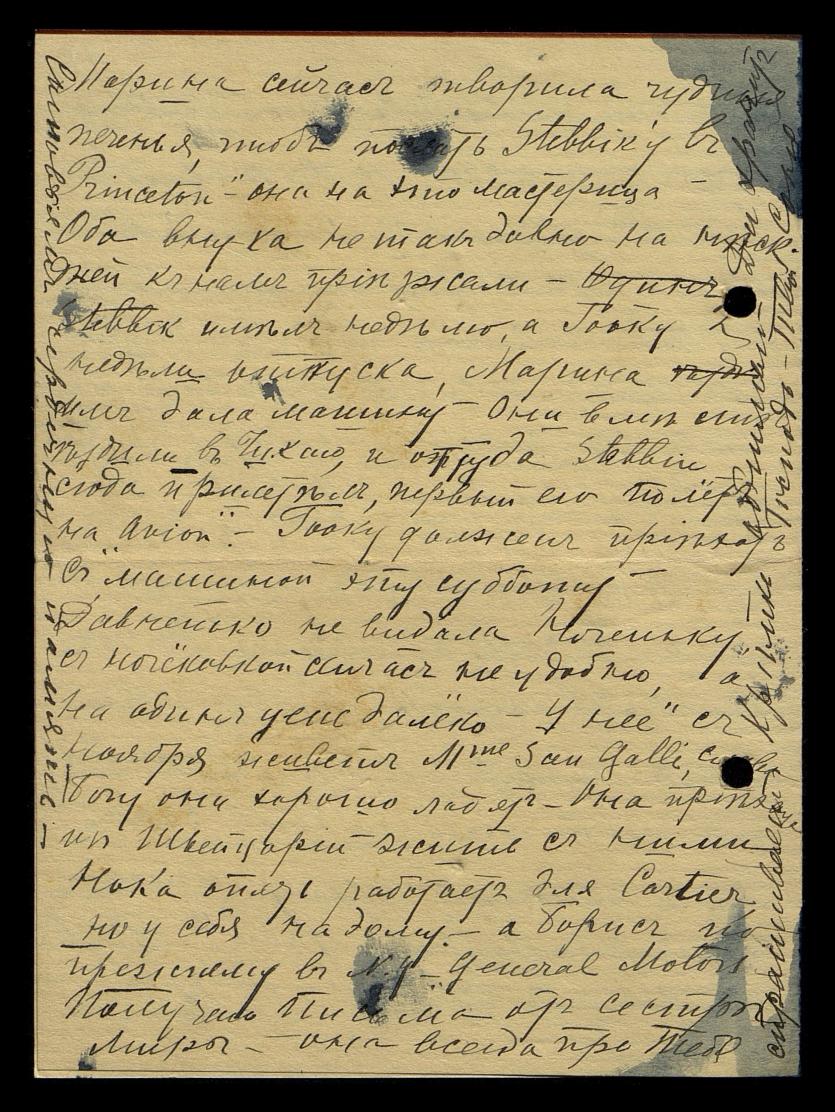 Марина сейчасъ творила чудныя
печенья, чтобъ послать Stebbik'у въ
Princeton" - она на это мастерица -
Оба внука не такъ давно на нѣск.
дней къ намъ пріѣзжали - Одинъ
Stebbik имѣлъ недѣлю, а Гоoку 2
недѣли отпуска, Марина
имъ дала машину - Они вмѣстѣ
ѣздили въ Чикаго, и оттуда Stebbin
сюда прилетѣлъ, первый его полётъ
на Avion". - долженъ пріѣхать
съ "машиной эту субботу -
Давнѣнько не видала Ноченьку,
съ ночёвкой сейчасъ не удобно, а
на одинъ день далёко - У неё" съ
Ноября живетъ Mme San Galli, слава
Богу они хорошо ладятъ - Она пріѣх.
изъ Швейцаріи жить съ ними
Нока опять работаетъ для Cartier
но у себя на дому. - а Борисъ по
прежнему въ N.Y. - General Motors
Получаю письма отъ сестры
Миры - она всегда про Тебя
спрашиваетъ. Крѣпко обнимаю Дай
Господь - Твоя
сердечную память -